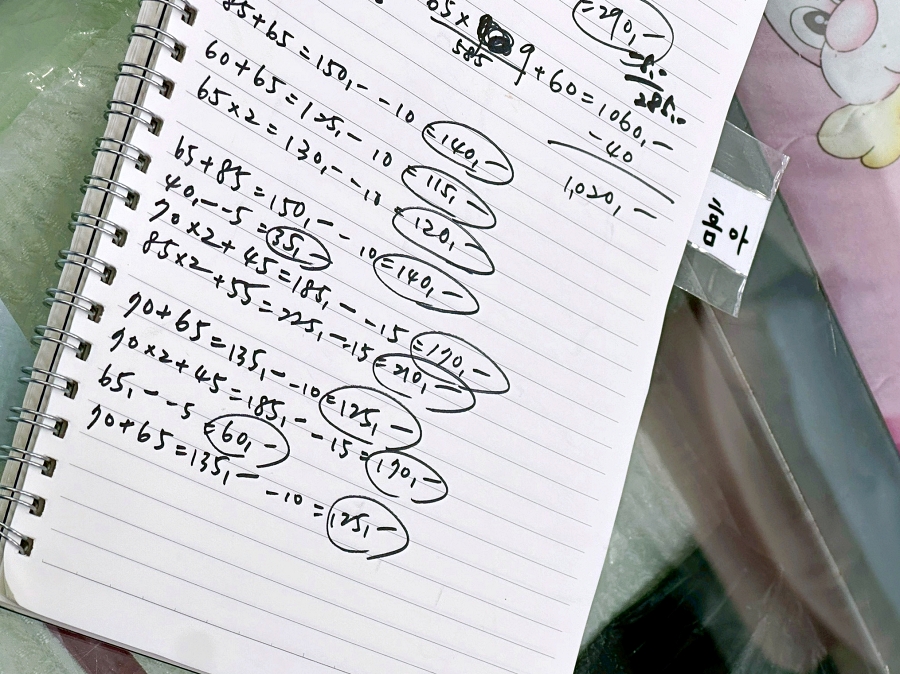 =290,-
-5,-
285,-
65× 9 +60=1060,-
585
-40
1,020,-
85+65=150,- -10 =140,-
60+65=125,- -10 =115,-
65×2=130,- -10 =120,-
65+85=150,- -10=140,-
40,- -5=35,-
70×2+45=185,- -15=170,-
85×2+55=225,- -15=210,-
70+65=135,- -10=125,-
70×2+45=185,- -15=170,-
65,- -5=60,-
70+65=135,- -10=125,-